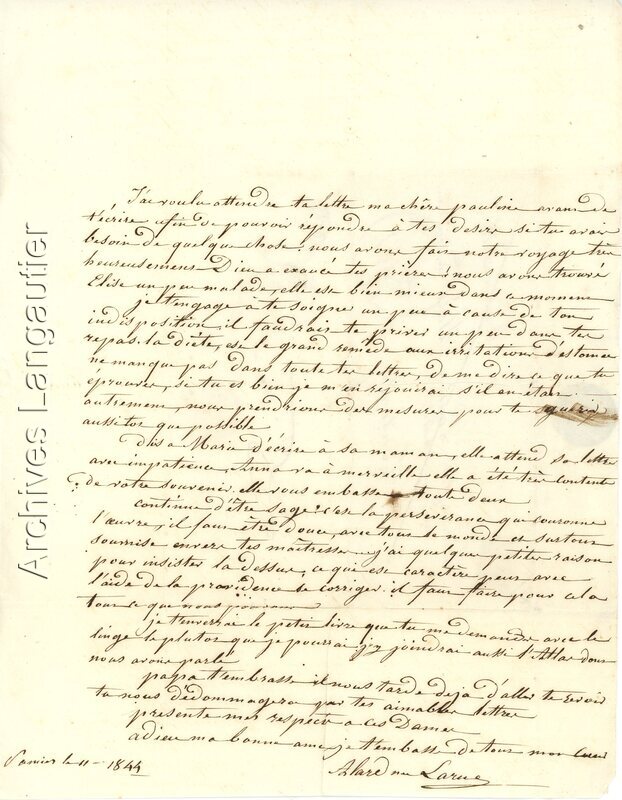 J'ai voulu attendre ta lettre ma chère pauline avant de
t'écrire afin de pouvoir répondre à tes desirs si tu avai
besoin de quelque chose: nous avons fais notre voyage très
heureusement Dieu a exaucé tes prières: nous avons trouvé
Elise un peu malade, elle est bien mieux dans ce moment
je t'engage à te soigner un peu à cause de ton
indisposition, il faudrais te priver un peu dans tes
repas. la diète, est le grand remède aux irritations d'estomac
ne manque pas dans toute tes lettres, de me dire ce que tu
éprouves, si tu es bien je m'en réjouirai s'il en étais
autrement, nous prendrions des mesures pour te guérir
aussitot que possible
Dis a Marie d'écrire à sa maman, elle attend sa lettre
avec impatience, Anna va à merveille elle a été très contente
de votre souvenir. elle vous embrasse toute deux
continue d'être sage: c'est la perseverance qui couronne
l'œuvre, il faut être douce, avec tous le monde et surtout
soumise envers tes maîtresses j'ai quelque petites raison
pour insister la dessus, ce qui est caractère peut avec
l'aide de la providence se corriger. il faut faire pour cela
tout ce que nous pouvons
je t'enverrai le petit livre que tu me demandes avec le
linge le plutot que je pourrai, j'y joindrai aussi l'Atlas dont
nous avons parlé
papa t'embrasse il nous tarde deja d'aller te revoir
tu nous dédommagera par tes aimables lettres
présente mes respects a ces Dames
adieu ma bonne amie, je t'embrasse de tout mon cœur
Pamiers le 11 - 1844
Alard née Larue
Archives Langautier